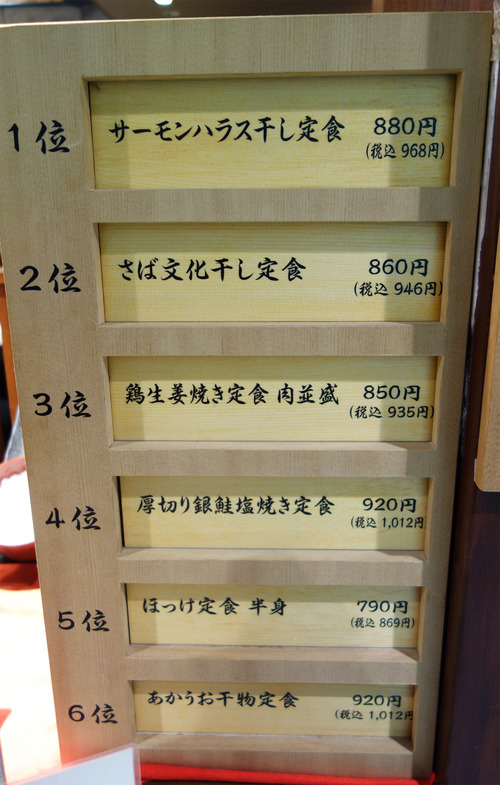 1位 サーモンハラス干し定食 880円
(税込 968円)
2位 さば文化干し定食 860円
(税込 946円)
3位 鶏生姜焼き定食 肉並盛 850円
(税込 935円)
4位 厚切り銀鮭塩焼き定食 920円
(税込 1,012円
5位 ほっけ定食 半身 790円
(税込 869円)
6位 あかうお干物定食 920円
(税込 1,012円